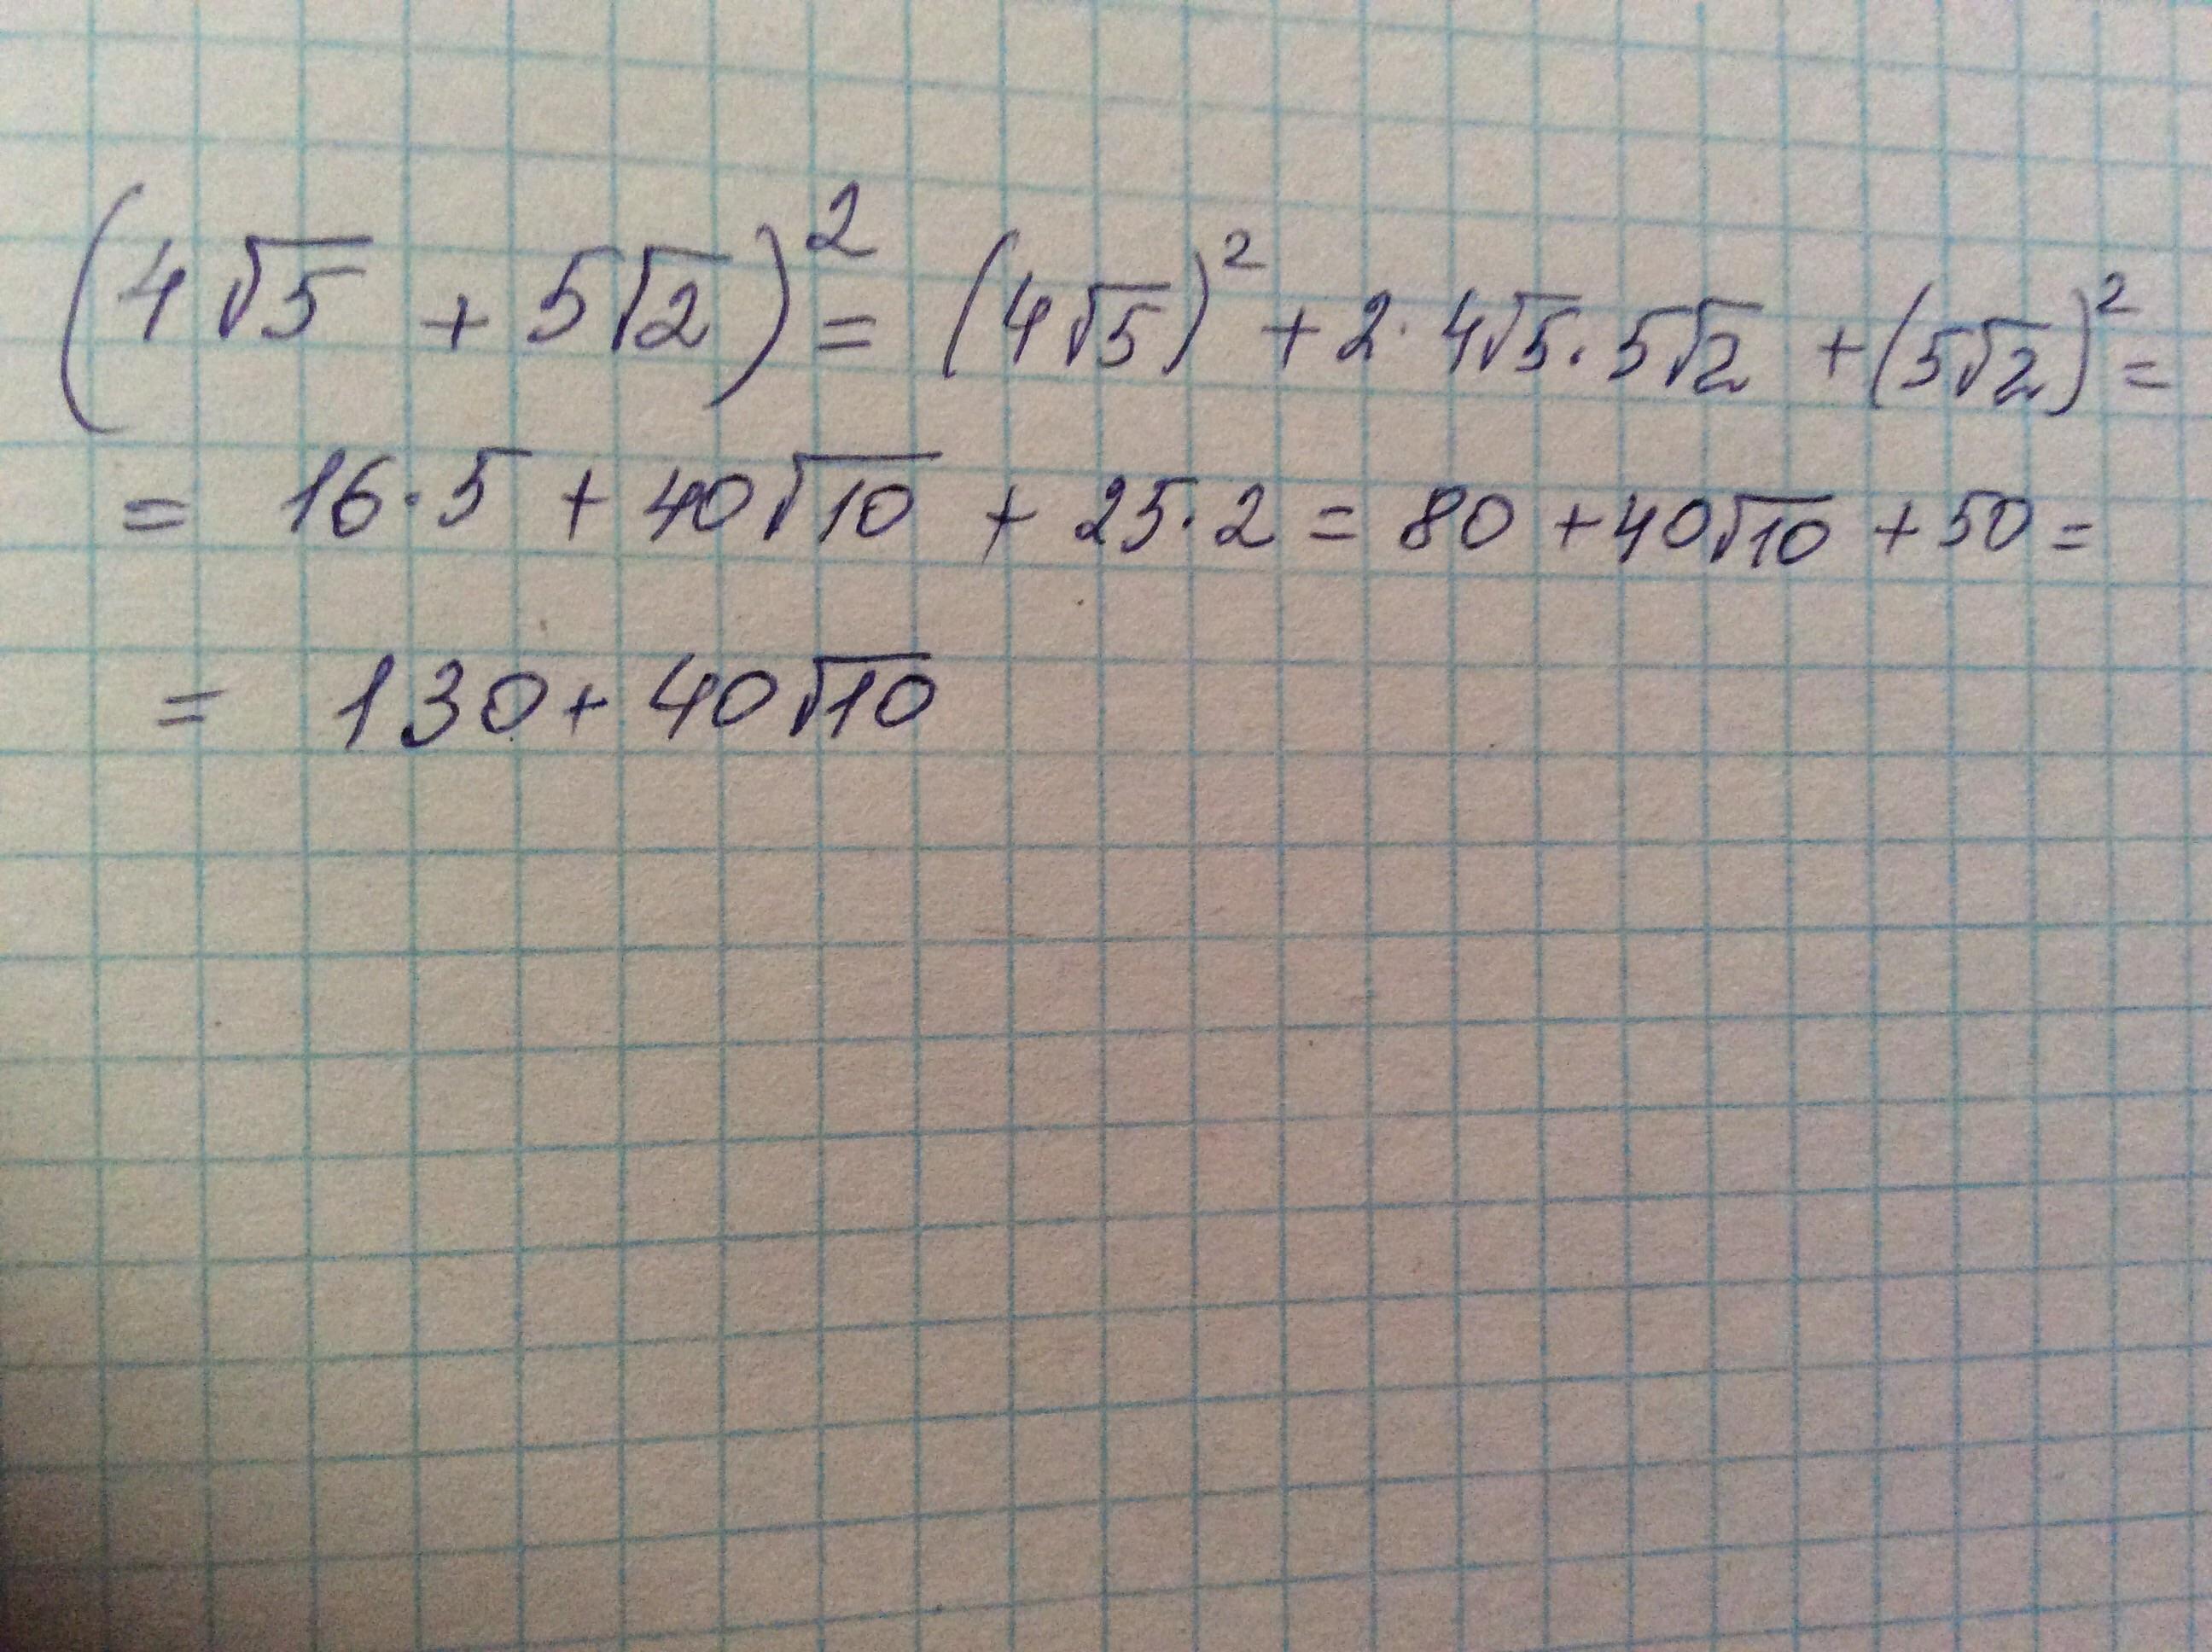 (4√5 + 5√2)² = (4√5)² + 2·4√5·5√2 + (5√2)² =
= 16·5 + 40√10 + 25·2 = 80 + 40√10 + 50 =
= 130 + 40√10